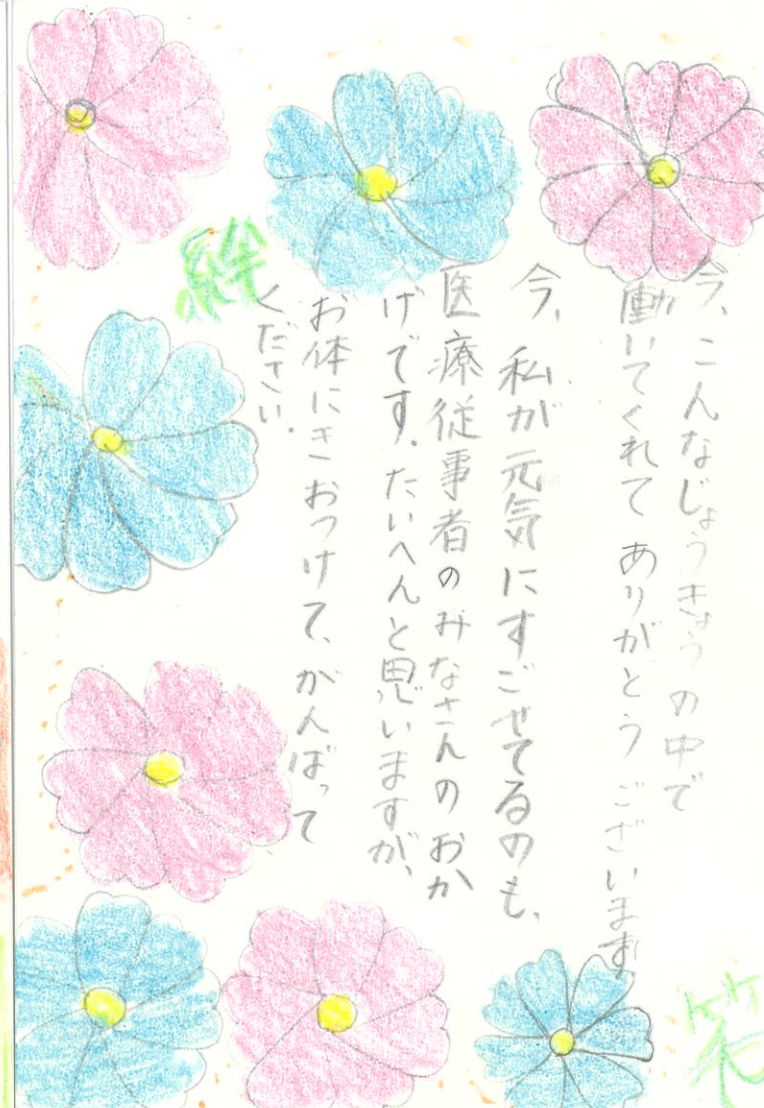 今、こんなじょうきょうの中で
働いてくれてありがとうございます
今、私が元気にすごせてるのも、
医療従事者のみなさんのおか
げです。たいへんと思いますが、
お体にきおつけて、がんばって
ください。
絆
笑